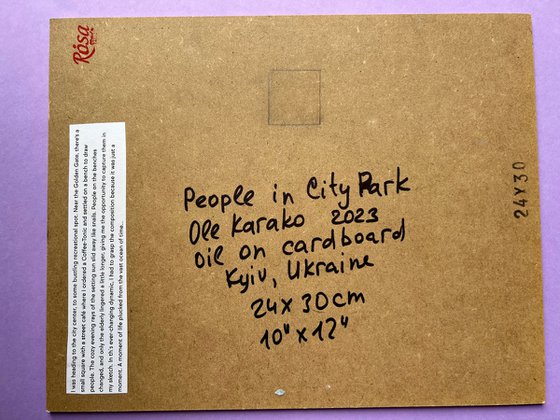 Rosa
Studio
I was heading to the city center, to some bustling recreational spot. Near the Golden Gate, there's a
small square with a street café where I ordered a Coffee-Tonic and settled on a bench to draw
people. The cozy evening rays of the setting sun slid away like snails. People on the benches
changed, and only the elderly lingered a little longer, giving me the opportunity to capture them in
my sketch. In this ever-changing dynamic, I had to grasp the composition because it was just a
moment. A moment of life plucked from the vast ocean of time...
People in City Park
Ole Karako 2023
oil on cardboard
Kyiv, Ukraine
24x30cm
10"x12"
24Y30